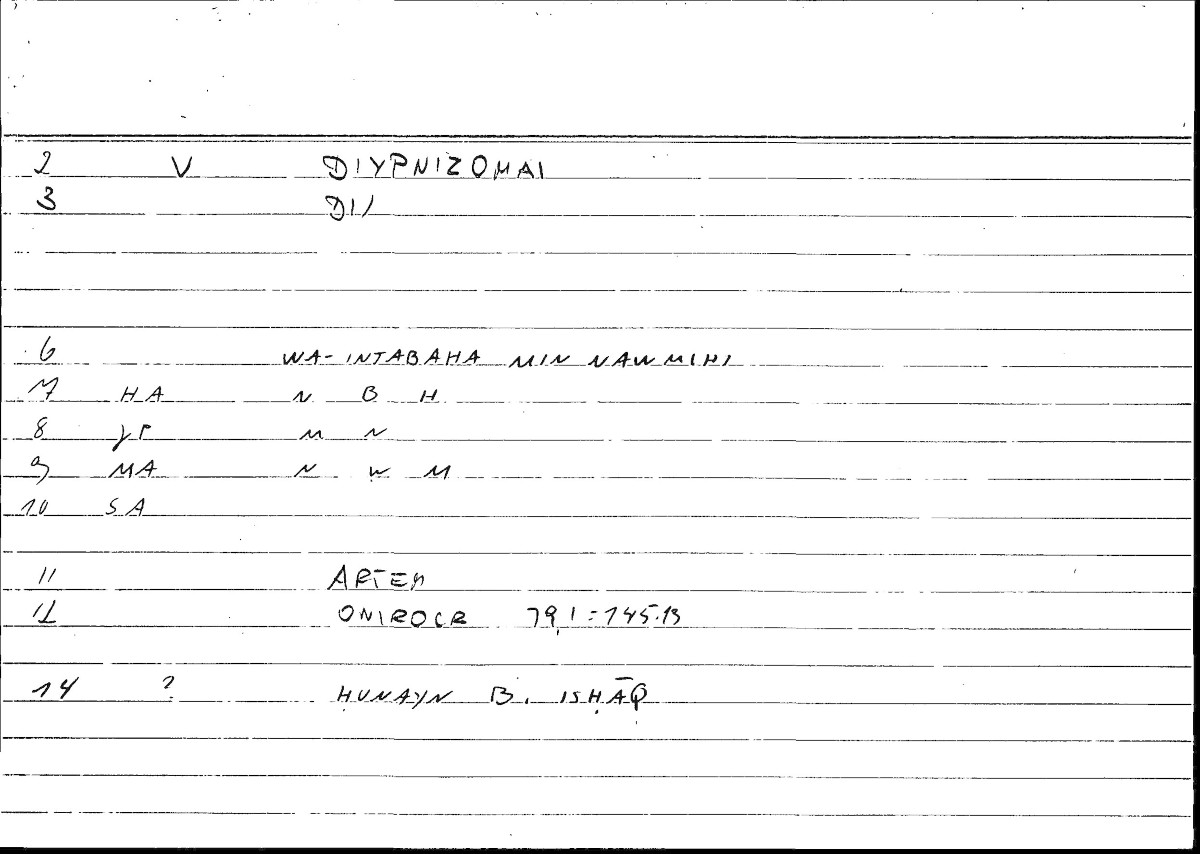 2 V DIYPNIZOMAI
3 DI/
6 WA-INTABAHA MIN NAWMIHI
7 HA N B H
8 M N
9 MA N W M
10 SA
11 ARTEM
12 ONIROCR 79,1=145.13
14 ? ḤUNAYN B. ISḤĀQ